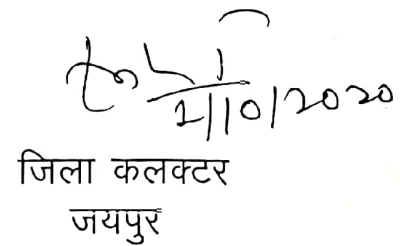 2/10/2020
जिला कलक्टर
जयपुर